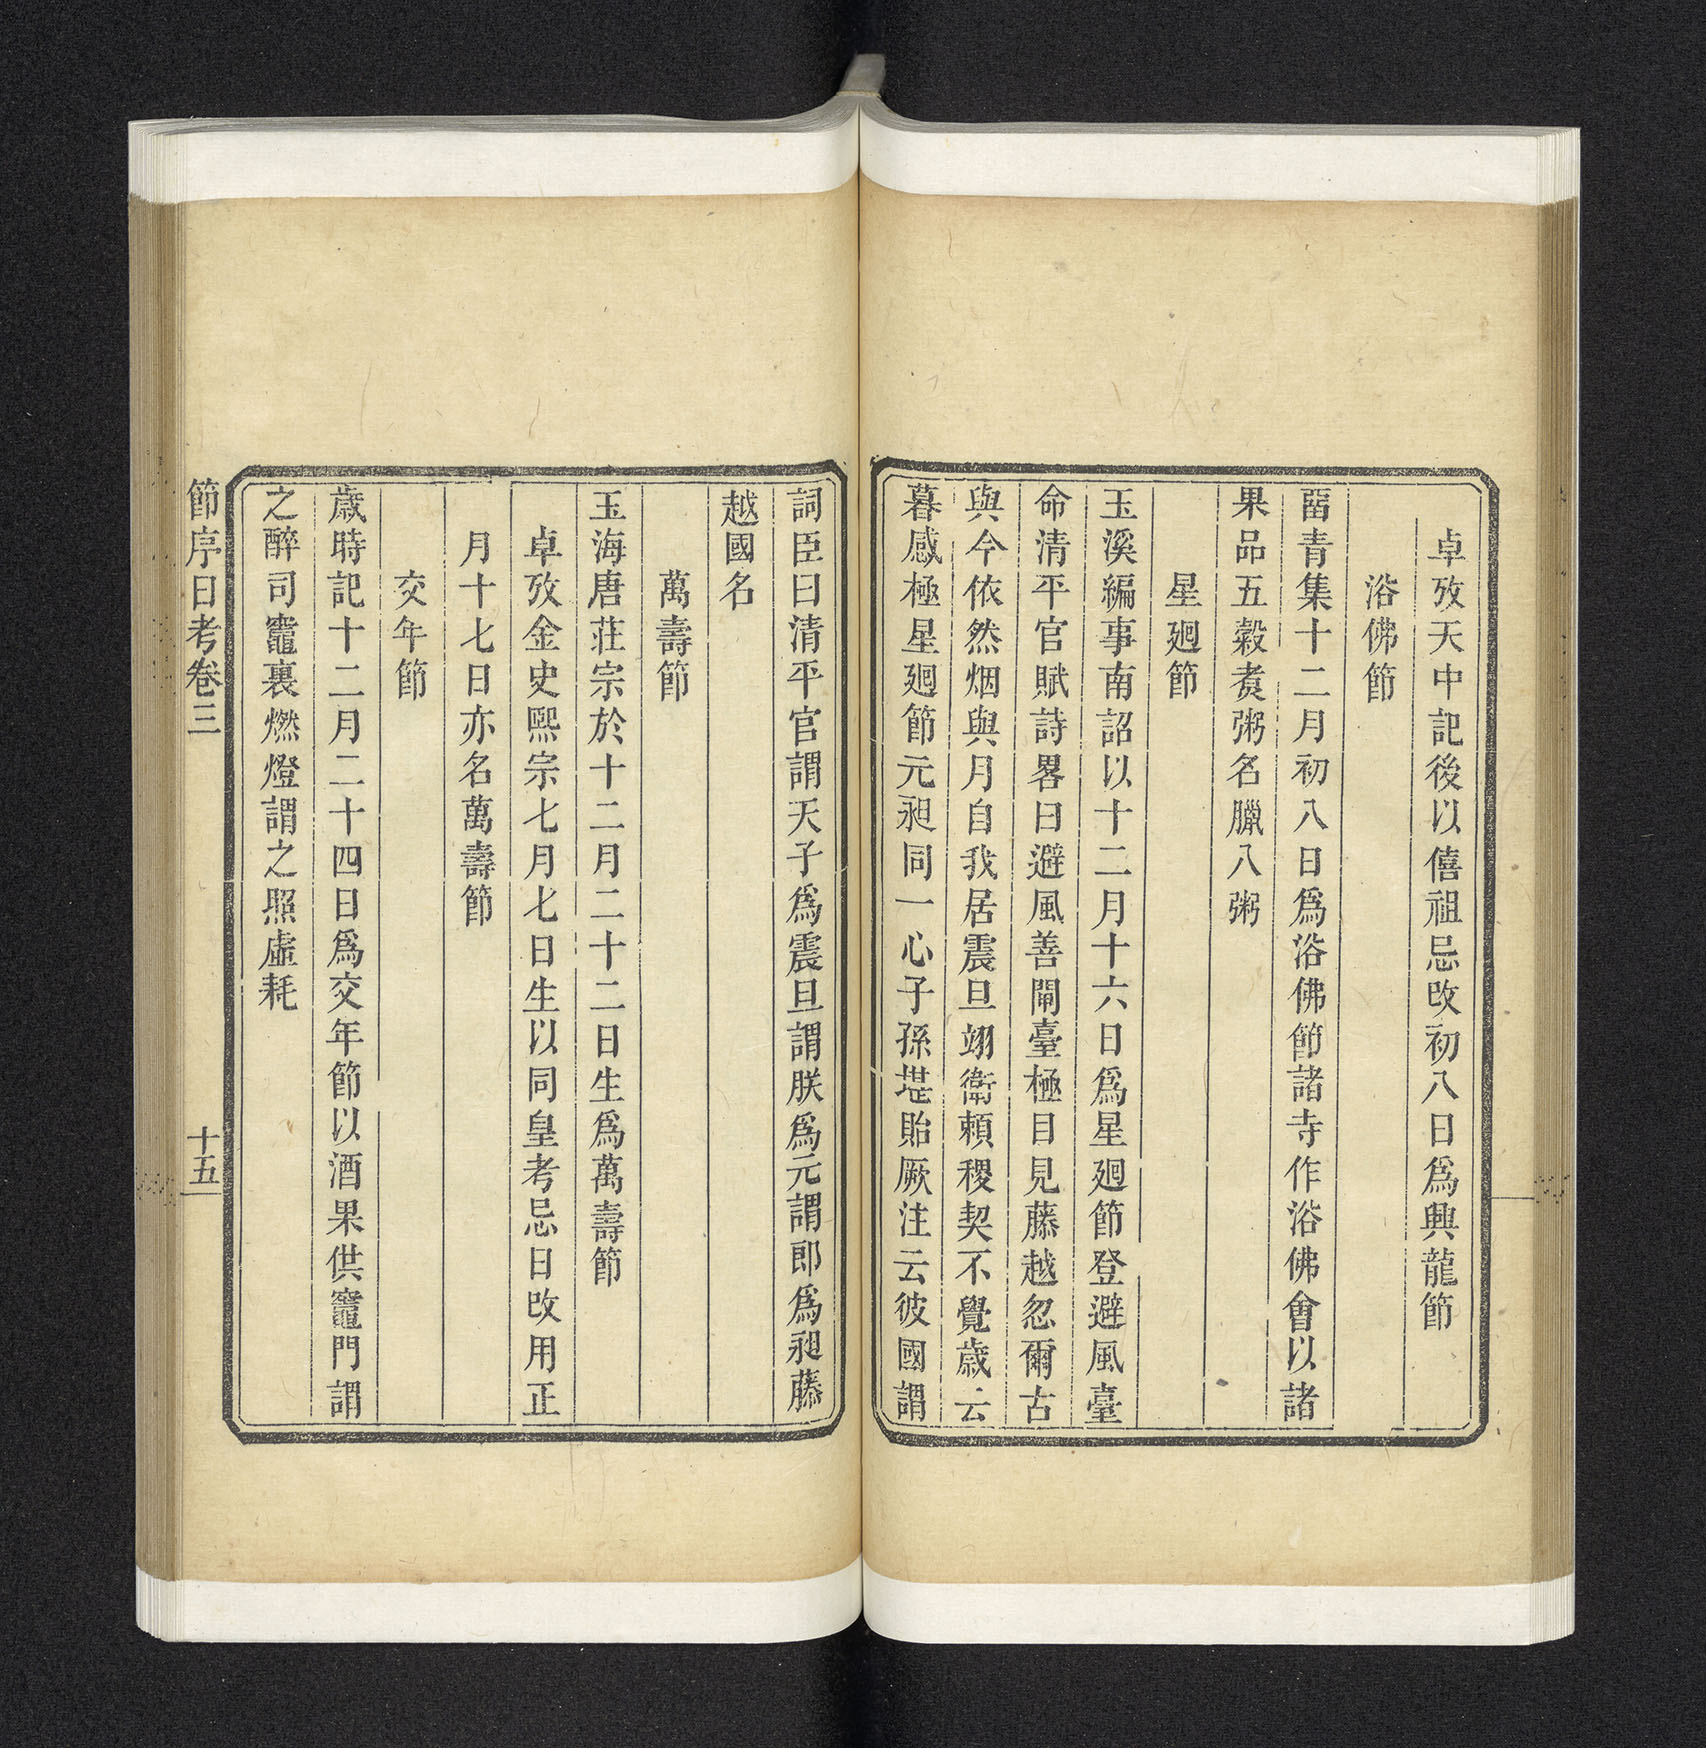 卓攷天中記後以僖祖忌改初八日爲興龍節
浴佛節
畱青集十二月初八日爲浴佛節諸寺作浴佛會以諸
果品五穀煑粥名臘八粥
星廻節
玉溪編事南詔以十二月十六日爲星廻節登避風臺
命清平官賦詩畧曰避風善闡臺極目見藤越忽爾古
與今依然烟與月自我居震旦翊衛頼稷契不覺歳云
暮感極星廻節元昶同一心子孫堪貽厥注云彼國謂
詞臣曰清平官謂天子爲震旦謂朕爲元謂郎爲昶藤
越國名
萬壽節
玉海唐莊宗於十二月二十二日生爲萬壽節
卓攷金史熙宗七月七日生以同皇考忌日改用正
月十七日亦名萬壽節
交年節
歳時記十二月二十四日爲交年節以酒果供竈門謂
之醉司竈裏燃燈謂之照虛耗
節序日考卷三
十五